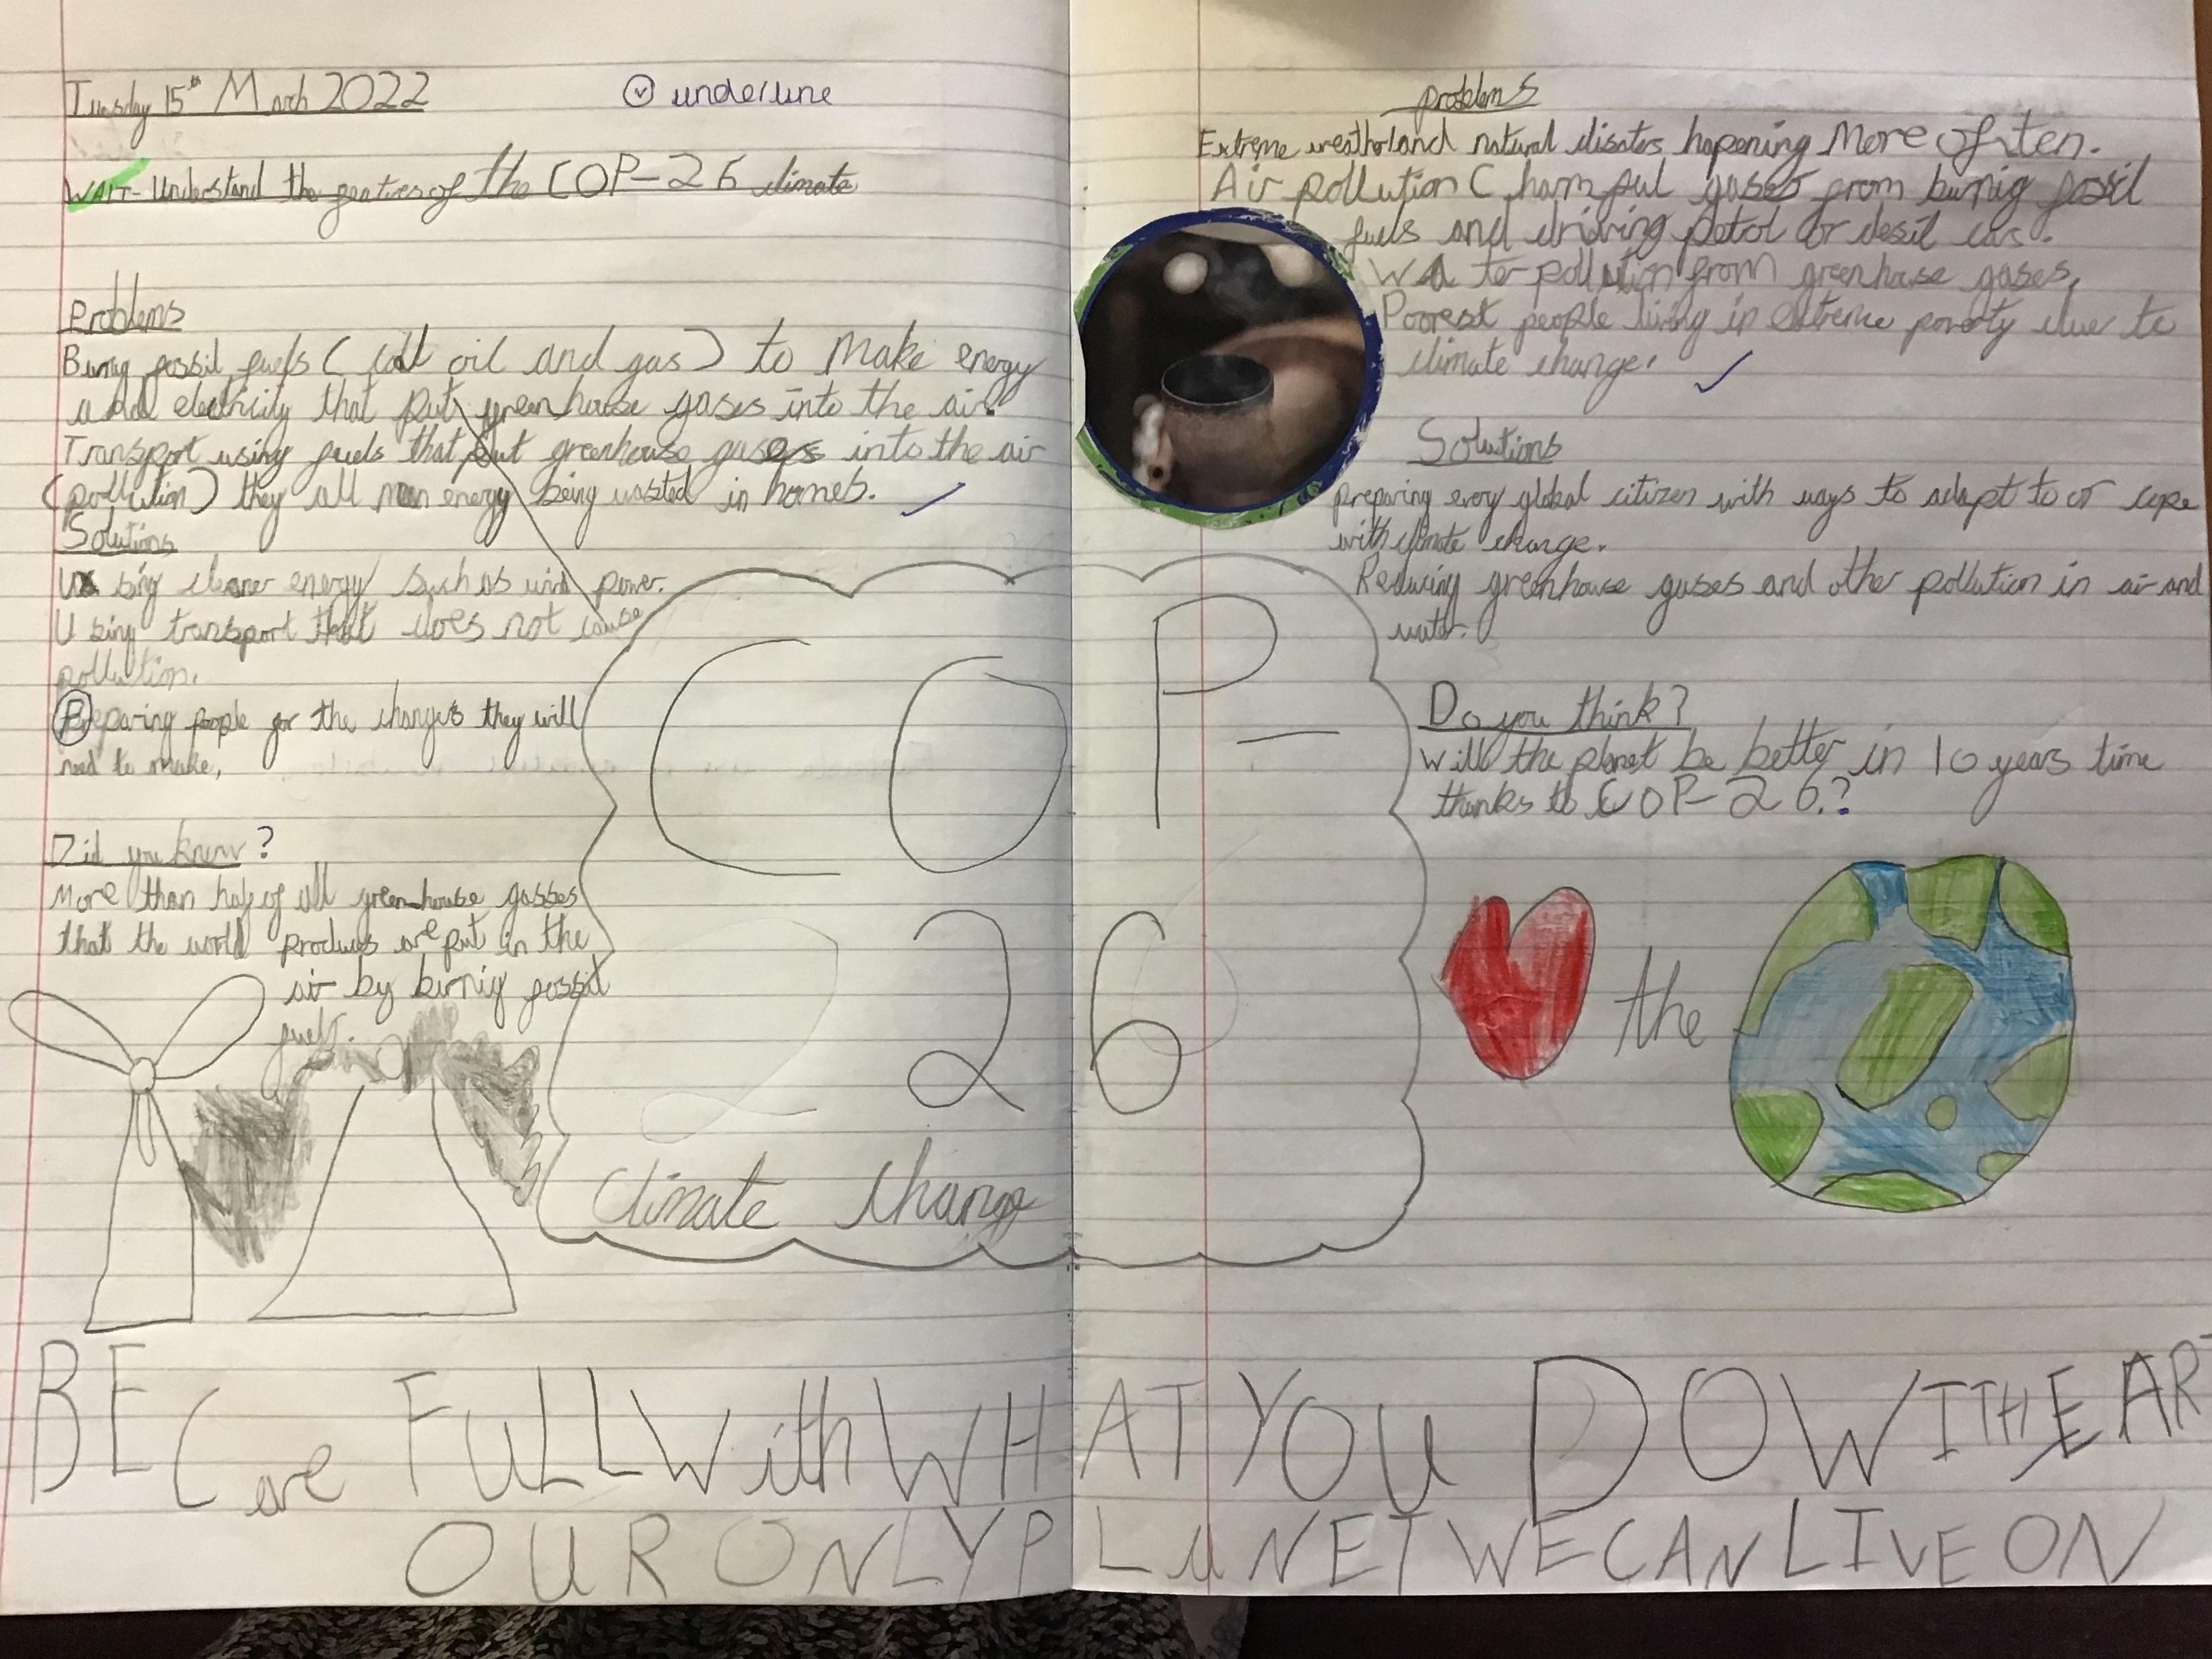 Tuesday 15th March 2022
underline
WALT- Understand the featires of the COP-26 climate
Problems
Burnig fossil fuels ( coal oil and gas ) to Make energy
and electricity that put greenhouse gases into the air.
Transport using fuels that put greenhouse gases into the air
( pollution ) they all men energy being wasted in homes.
Solutions
Using cleaner energy such as wind power.
Using transport that does not cause
pollution.
Preparing people for the changes they will
need to make,
Did you know?
More than half of all greenhouse gasses
that the world produces are put in the
air by burnig fossil
fuels.
COP-
26
Climate change
problems
Extreme weather and natural disaters hapening More often.
Air pollution ( harmful gases from burnig fossil
fuels and driving petrol or desil cars.
Water pollution from greenhouse gases.
Poorest people living in extreme poverty due to
climate change.
Solutions
preparing every global citizen with ways to adapt to or cope
with climate change.
Reducing greenhouse gases and other pollution in air and
water.
Do you think?
Will the planet be better in 10 years time
thanks to COP-26.?
the
BE Care FULL With WHAT YOU DO WITH EAR
OUR ONLY PLaNET WE CAN LIVE ON